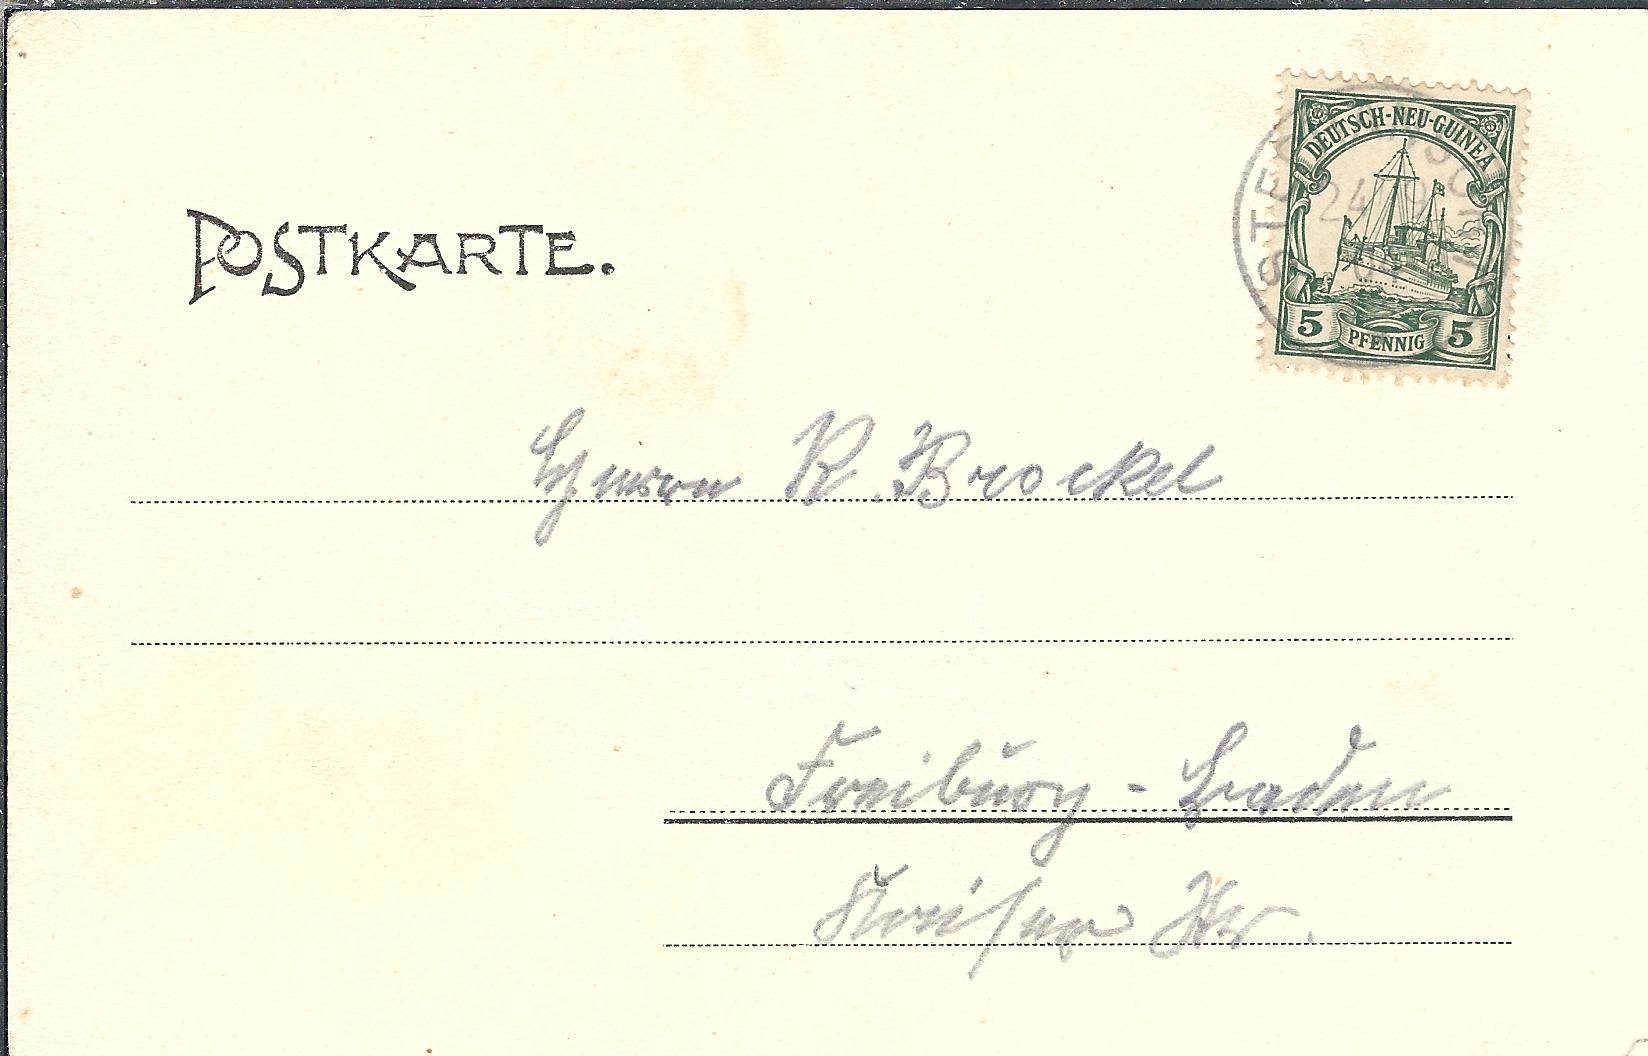 POSTKARTE.
DEUTSCH-NEU-GUINEA
5 PFENNIG 5
24 9
Herrn R. Brockel
Freiburg - Baden
Kaiser Str.